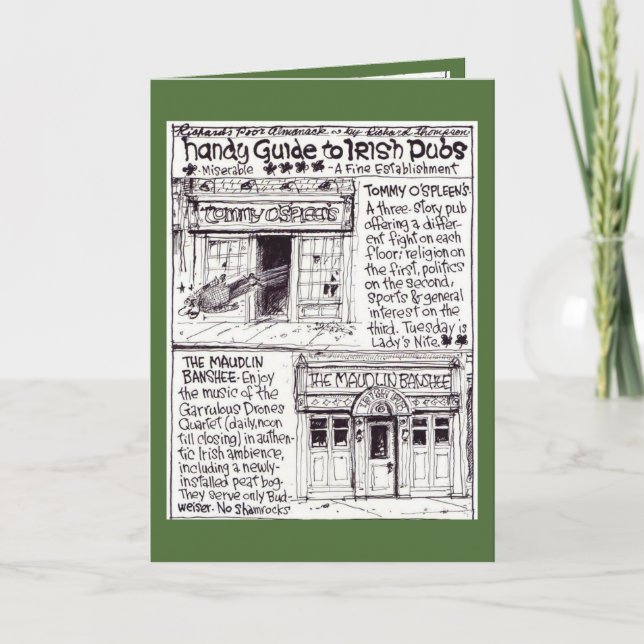 Richard's Poor Almanack ~ by Richard Thompson
handy Guide to IRISH Pubs
- Miserable - A Fine Establishment
TOMMY O'SPLEEN'S
TOMMY O'SPLEEN'S-
A three-story pub
offering a differ-
ent fight on each
floor; religion on
the first, politics
on the second,
sports & general
interest on the
third. Tuesday is
Lady's Nite.
THE MAUDLIN
BANSHEE- Enjoy
the music of the
Garrulous Drones
Quartet (daily, noon
till closing) in authen-
tic Irish ambience,
including a newly-
installed peat bog.
They serve only Bud-
weiser. No Shamrocks
THE MAUDLIN BANSHEE